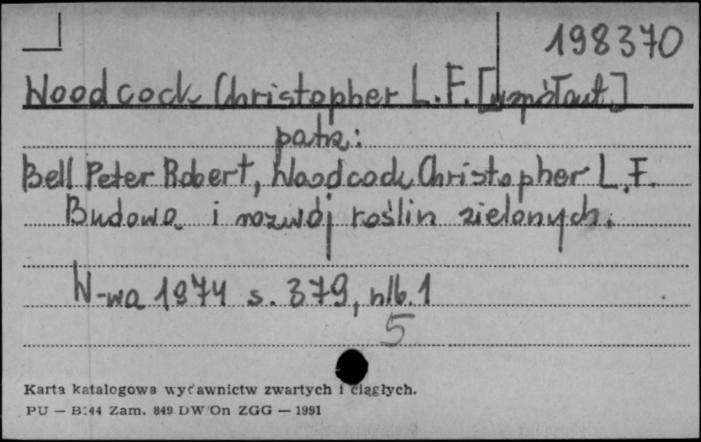 198370
Woodcock Christopher L. F. [współaut.]
patrz:
Bell Peter Robert, Woodcock Christopher L. F.
Budowa i rozwój roślin zielonych.
W-wa 1974 s. 379, nlb. 1
5
Karta katalogowa wydawnictw zwartych i ciągłych.
PU — B.44 Zam. 849 DW On ZGG — 1991